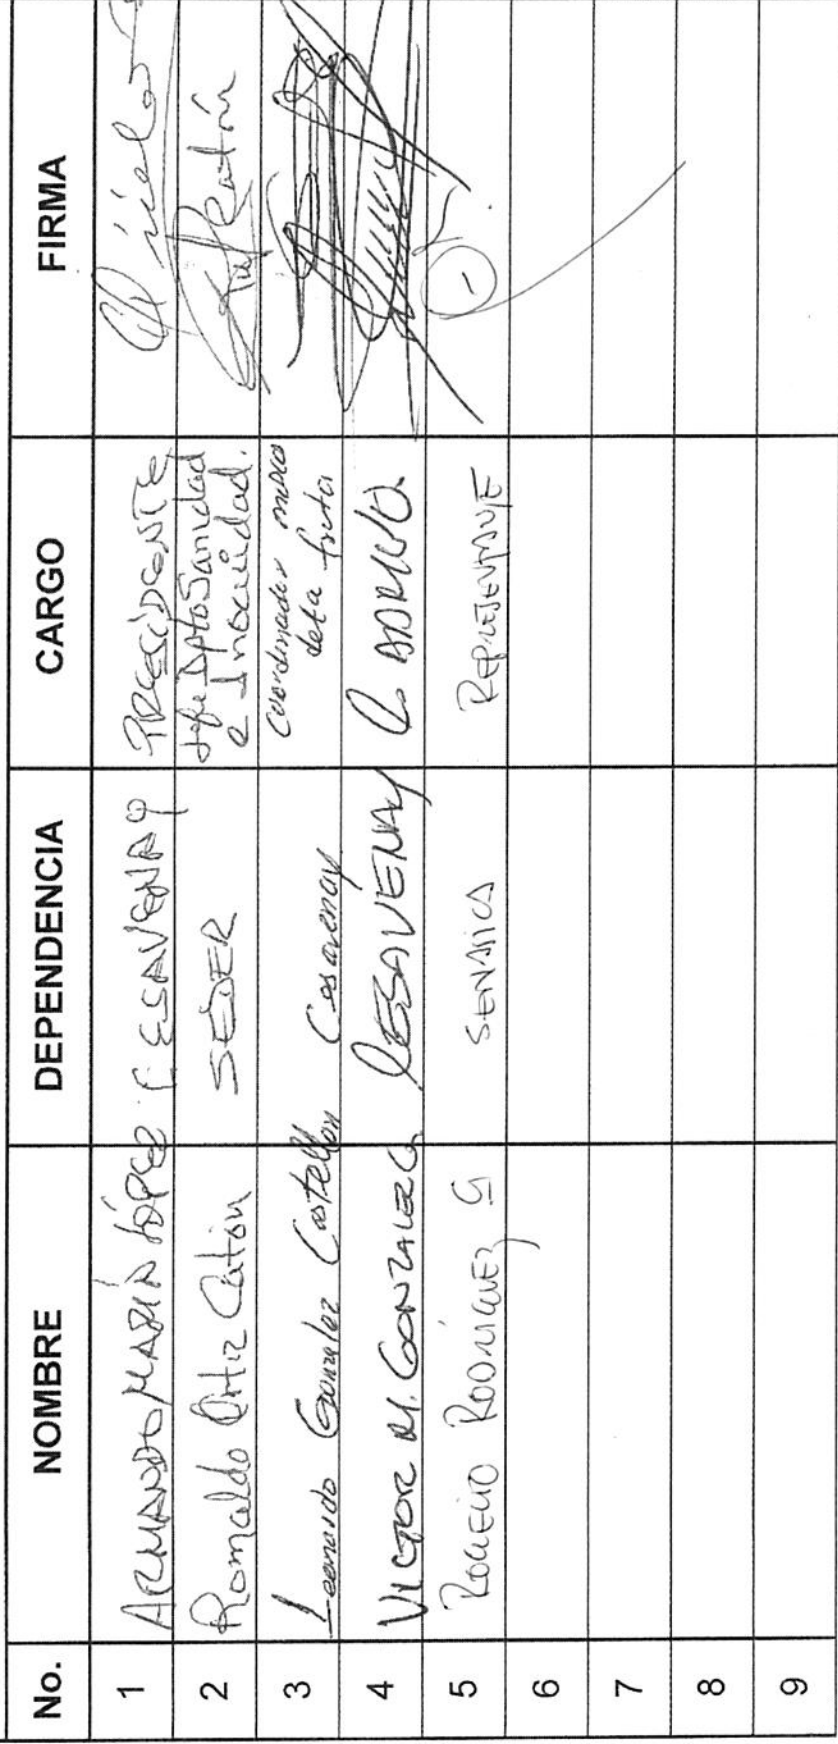 No. NOMBRE DEPENDENCIA CARGO FIRMA
1 ARMANDO MARÍN LÓPEZ CESAVENAY PRESIDENTE
2 Romaldo Ortiz Catón SEDER Jefe Dpto Sanidad
e Inocuidad.
3 Leonardo Gonzalez Castellon Cesavenay Coordinador mosca
de la fruta
4 VICTOR M. GONZALEZ G. CESAVENAY
5 ROGELIO RODRIGUEZ G SENASICA REPRESENTANTE
6
7
8
9